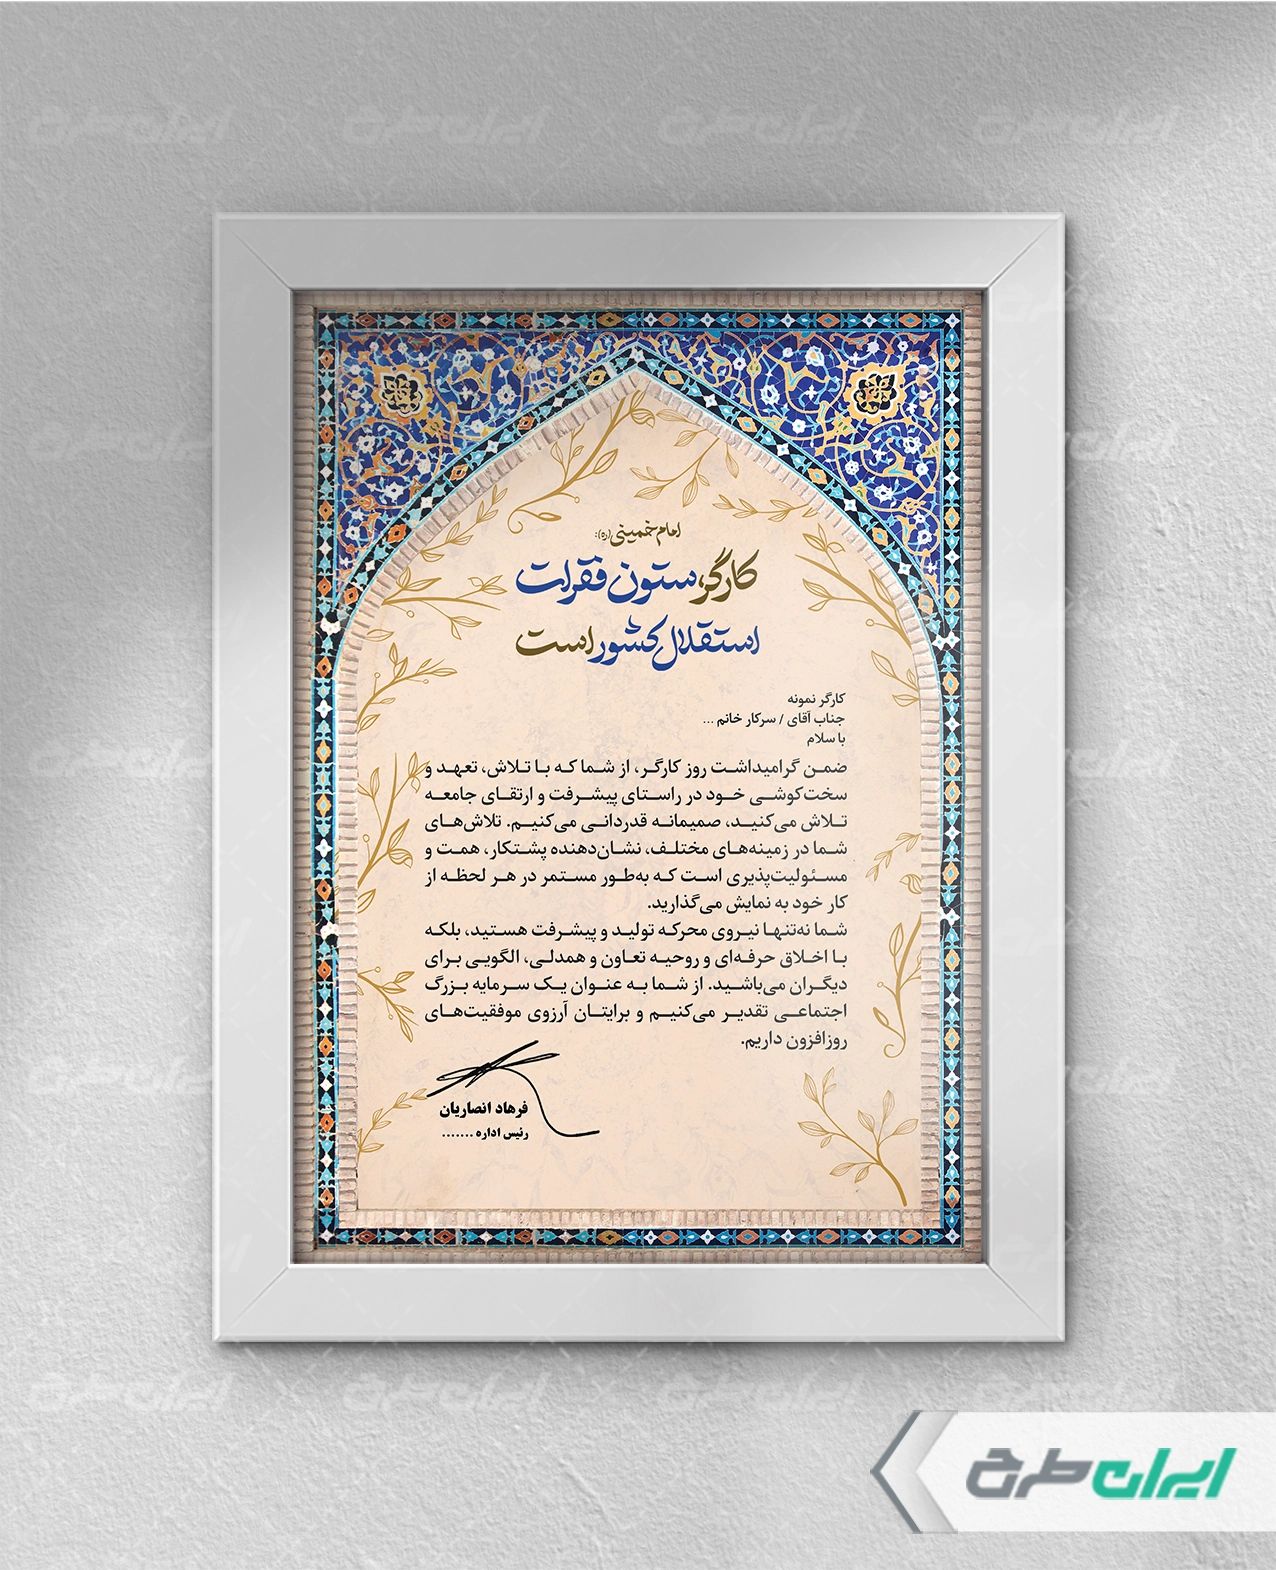 امام خمینی (ره):
کارگر، ستون فقرات
استقلال کشور است
کارگر نمونه
جناب آقای / سرکار خانم ...
با سلام
ضمن گرامیداشت روز کارگر، از شما که با تلاش، تعهد و
سخت‌کوشی خود در راستای پیشرفت و ارتقای جامعه
تلاش می‌کنید، صمیمانه قدردانی می‌کنیم. تلاش‌های
شما در زمینه‌های مختلف، نشان‌دهنده پشتکار، همت و
مسئولیت‌پذیری است که به‌طور مستمر در هر لحظه از
کار خود به نمایش می‌گذارید.
شما نه‌تنها نیروی محرکه تولید و پیشرفت هستید، بلکه
با اخلاق حرفه‌ای و روحیه تعاون و همدلی، الگویی برای
دیگران می‌باشید. از شما به عنوان یک سرمایه بزرگ
اجتماعی تقدیر می‌کنیم و برایتان آرزوی موفقیت‌های
روزافزون داریم.
فرهاد انصاریان
رئیس اداره .......
ایران طرح